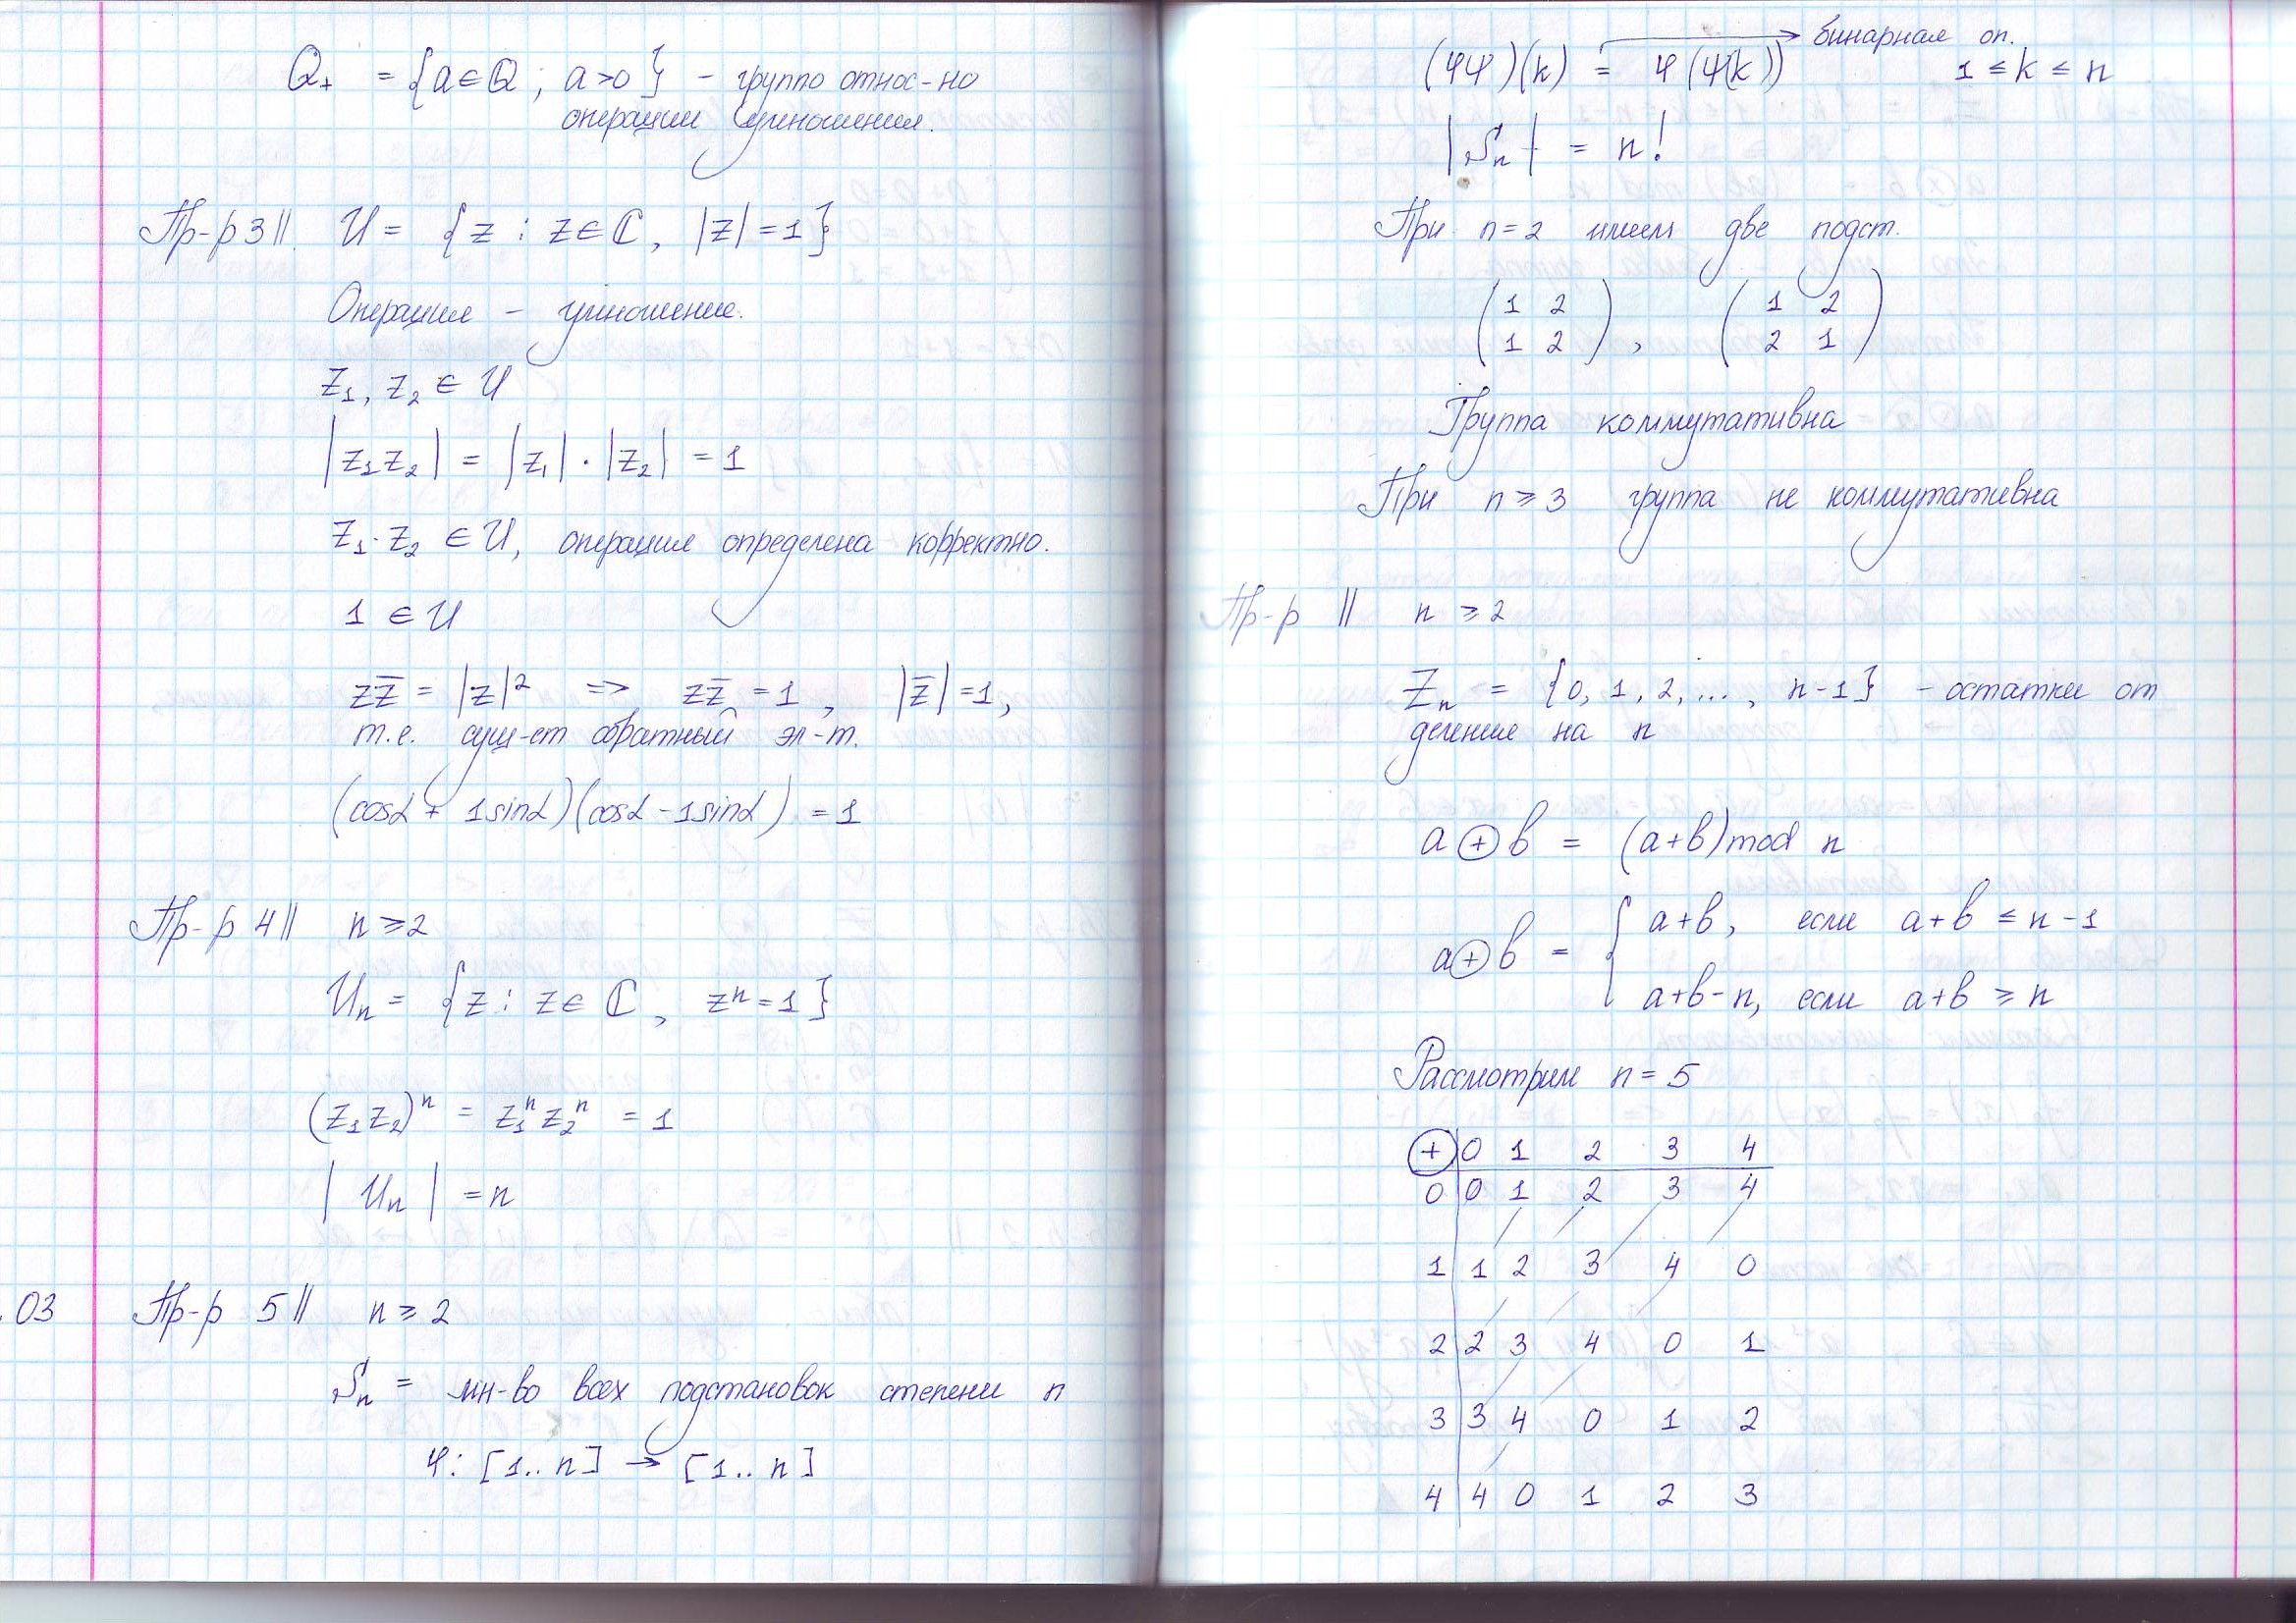 Q₊ = {a ∈ ℚ ; a > 0} – группа относ-но
операции умножения.
Пр-р 3 || U = {z : z ∈ ℂ, |z| = 1}
Операция – умножение.
z₁, z₂ ∈ U
|z₁z₂| = |z₁| · |z₂| = 1
z₁·z₂ ∈ U, операция определена корректно.
1 ∈ U
zz̄ = |z|² => zz̄ = 1, |z̄| = 1,
т.е. сущ-ет обратный эл-т.
(cosα + 1sinα)(cosα - 1sinα) = 1
Пр-р 4 || n ≥ 2
Uₙ = {z : z ∈ ℂ, zⁿ = 1}
(z₁z₂)ⁿ = z₁ⁿz₂ⁿ = 1
|Uₙ| = n
.03 Пр-р 5 || n ≥ 2
Sₙ = мн-во всех подстановок степени n
φ: [1..n] → [1..n]
бинарная оп.
(φψ)(k) = φ(ψ(k)) 1 ≤ k ≤ n
|Sₙ| = n!
При n = 2 имеем две подст.
(1 2) , (1 2)
(1 2) (2 1)
Группа коммутативна
При n ≥ 3 группа не коммутативна
Пр-р || n ≥ 2
Zₙ = {0, 1, 2, ..., n-1} – остатки от
деление на n
a ⊕ b = (a+b) mod n
a ⊕ b = { a+b, если a+b ≤ n-1
a+b-n, если a+b ≥ n
Рассмотрим n = 5
⊕ 0 1 2 3 4
0 0 1 2 3 4
1 1 2 3 4 0
2 2 3 4 0 1
3 3 4 0 1 2
4 4 0 1 2 3